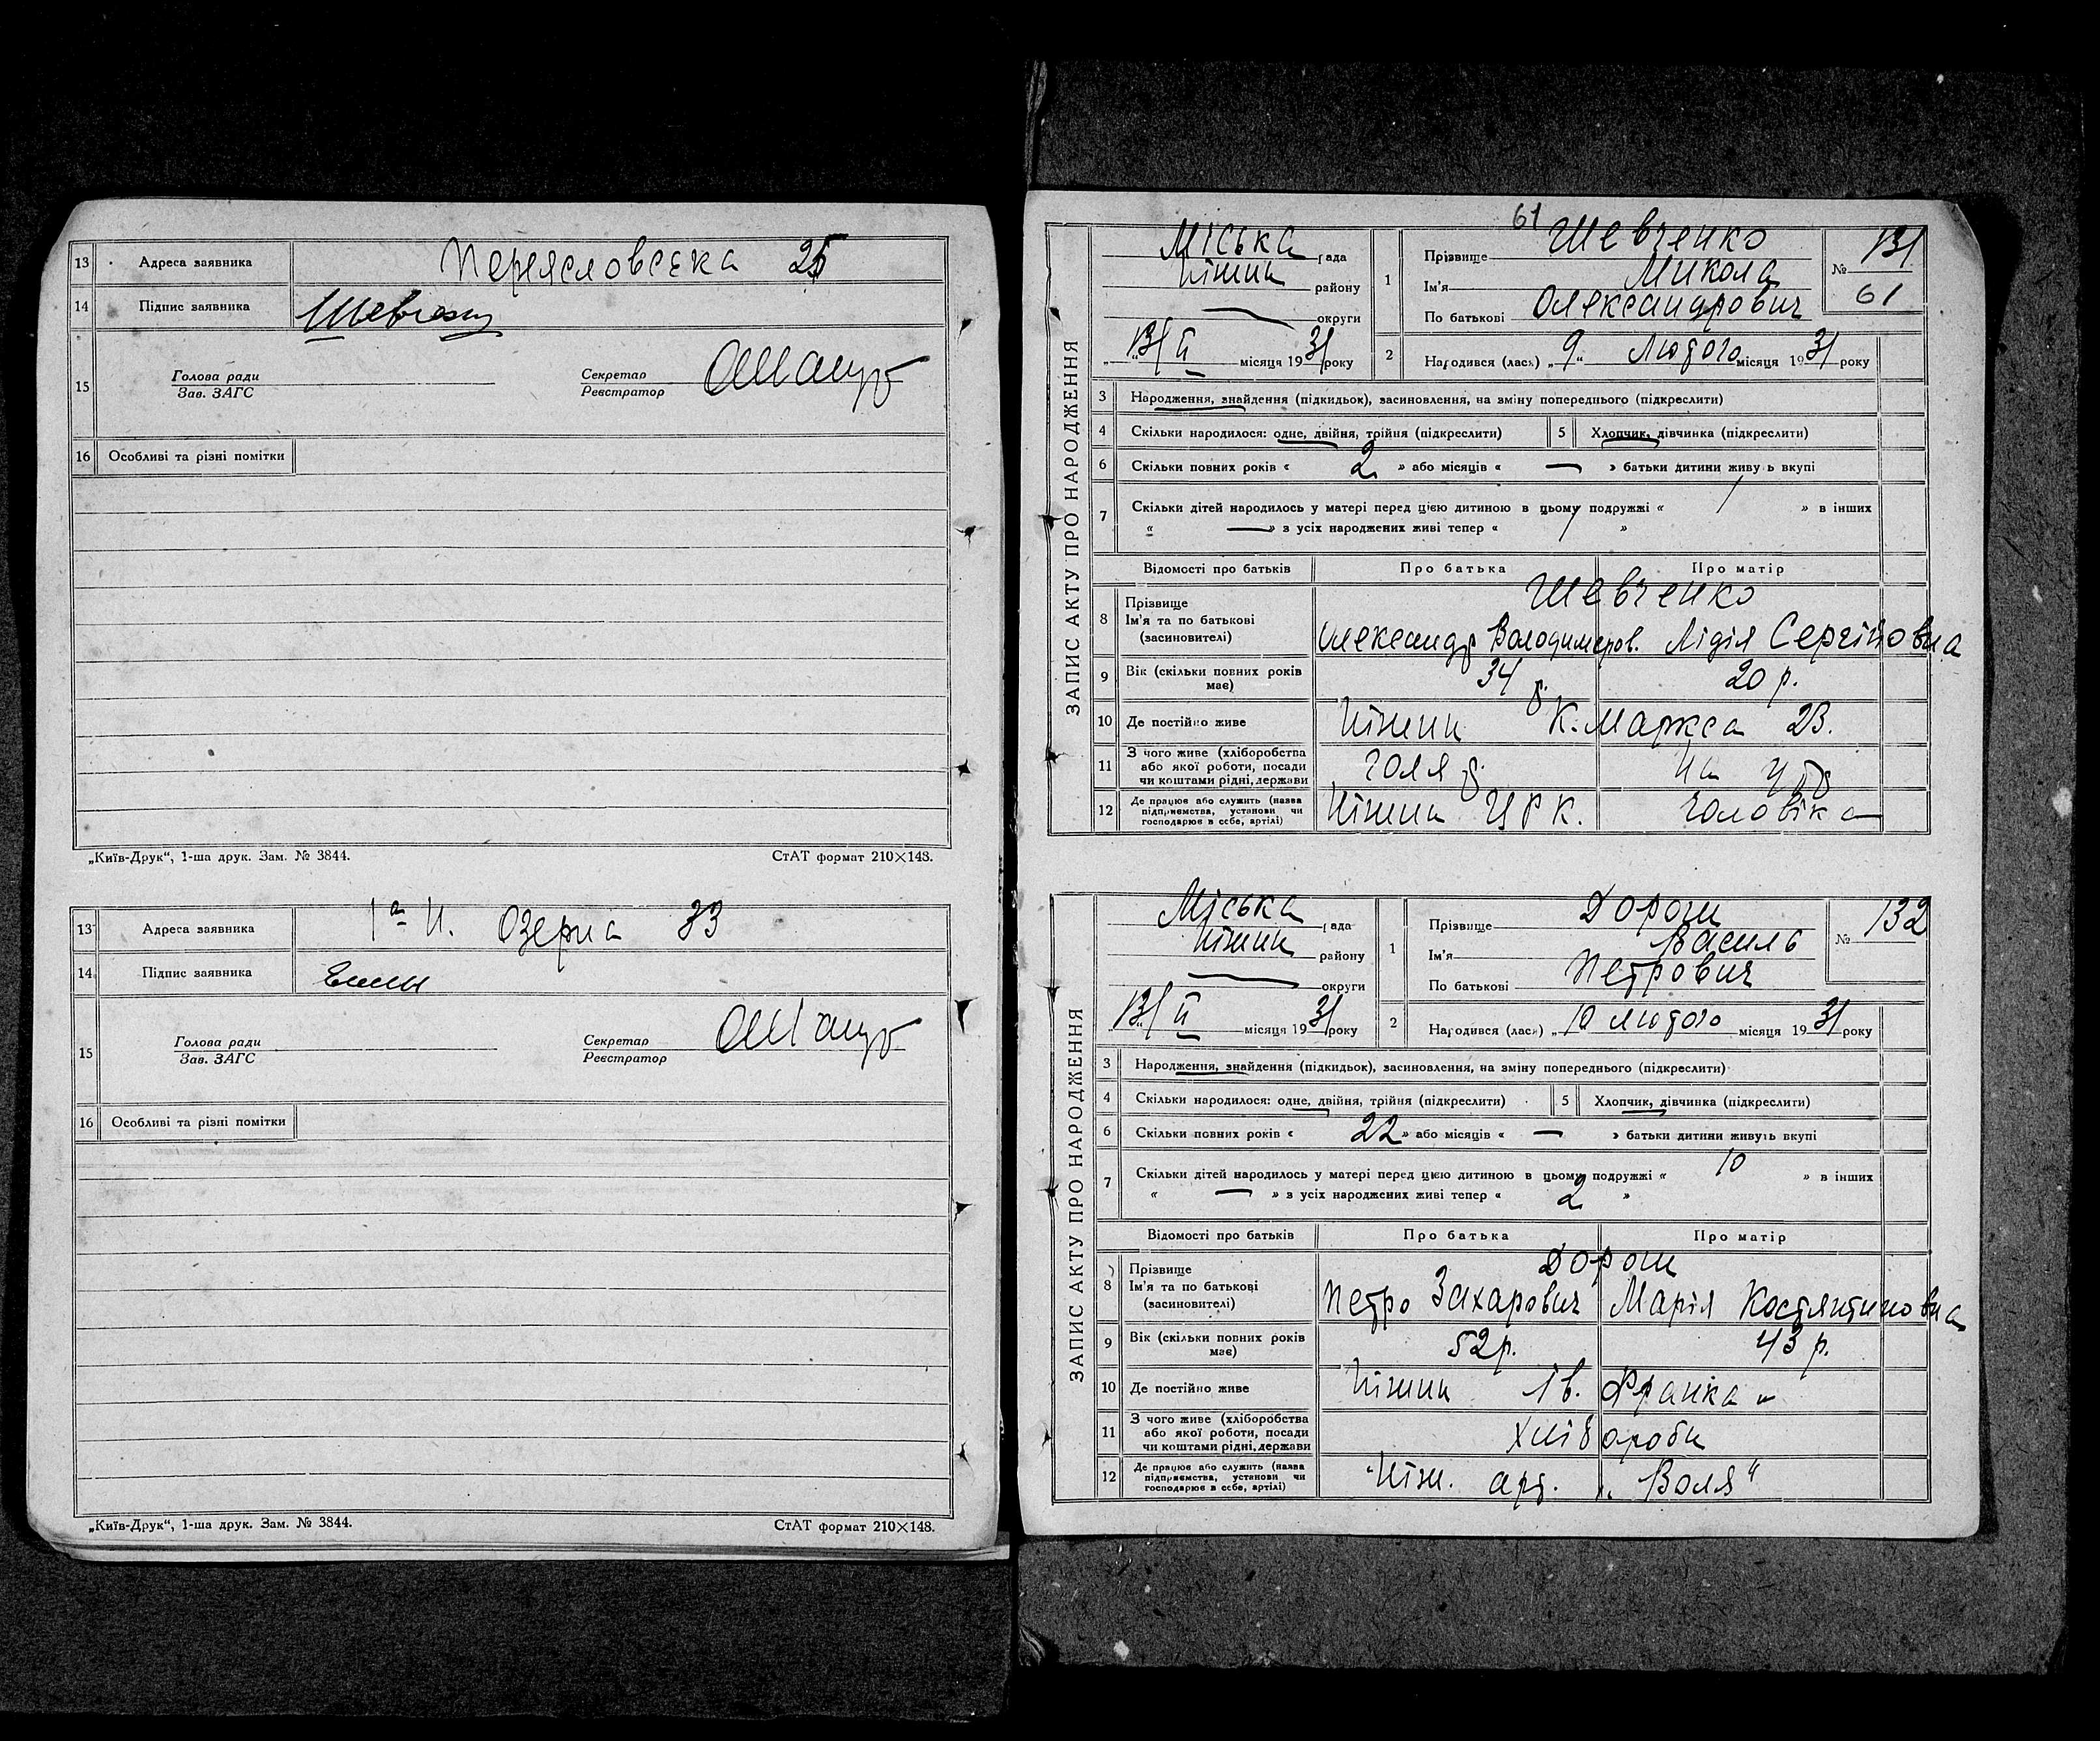 13 Адреса заявника Переясловська 25
14 Підпис заявника Шевченко
15 Голова ради Секретар
Зав. ЗАГС Реєстратор
16 Особливі та різні помітки
„Київ-Друк“, 1-ша друк. Зам. № 3844. СтАТ формат 210×148.
13 Адреса заявника 1а Н. Озерна 33
14 Підпис заявника
15 Голова ради Секретар
Зав. ЗАГС Реєстратор
16 Особливі та різні помітки
„Київ-Друк“, 1-ша друк. Зам. № 3844. СтАТ формат 210×148.
61
ЗАПИС АКТУ ПРО НАРОДЖЕННЯ
Міська рада
Ніжин району
округи
13/II місяця 1931 року
1 Прізвище Шевченко
Ім'я Микола
По батькові Олександрович
№ 131
61
2 Народився (лась) „9“ Лютого місяця 1931 року
3 Народження, знайдення (підкидьок), засиновлення, на зміну попереднього (підкреслити)
4 Скільки народилося: одне, двійня, трійня (підкреслити) 5 Хлопчик, дівчинка (підкреслити)
6 Скільки повних років « 2 » або місяців « — » батьки дитини живуть вкупі
7 Скільки дітей народилось у матері перед цією дитиною в цьому подружжі « 1 » в інших
« — » з усіх народжених живі тепер « 1 »
Відомості про батьків Про батька Про матір
8 Прізвище Шевченко
Ім'я та по батькові
(засиновителі) Олександр Володимиров. Лідія Сергіївна
9 Вік (скільки повних років має) 34 20 р.
10 Де постійно живе Ніжин К. Маркса 23.
11 З чого живе (хліборобства
або якої роботи, посади
чи коштами рідні, держави голяр на утр
12 Де працює або служить (назва
підприємства, установи чи
господарює в себе, артілі) Ніжин ЦРК. Чоловіка
ЗАПИС АКТУ ПРО НАРОДЖЕННЯ
Міська рада
Ніжин району
округи
13/II місяця 1931 року
1 Прізвище Дорош
Ім'я Василь
По батькові Петрович
№ 132
2 Народився (лась) „10 лютого місяця 1931 року
3 Народження, знайдення (підкидьок), засиновлення, на зміну попереднього (підкреслити)
4 Скільки народилося: одне, двійня, трійня (підкреслити) 5 Хлопчик, дівчинка (підкреслити)
6 Скільки повних років « 22 » або місяців « — » батьки дитини живуть вкупі
7 Скільки дітей народилось у матері перед цією дитиною в цьому подружжі « 10 » в інших
« — » з усіх народжених живі тепер « 2 »
Відомості про батьків Про батька Про матір
8 Прізвище Дорош
Ім'я та по батькові
(засиновителі) Петро Захарович Марія Костянтиновна
9 Вік (скільки повних років має) 52 р. 43 р.
10 Де постійно живе Ніжин Ів. Франка
11 З чого живе (хліборобства
або якої роботи, посади
чи коштами рідні, держави Хліборобн
12 Де працює або служить (назва
підприємства, установи чи
господарює в себе, артілі) Ніж. арт. „Воля“